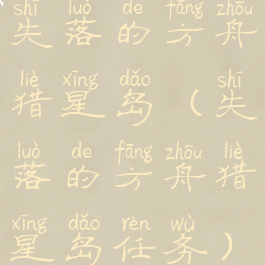 shī luò de fāng zhōu
失落的方舟
liè xīng dǎo shī
猎星岛（失
luò de fāng zhōu liè
落的方舟猎
xīng dǎo rèn wù
星岛任务）